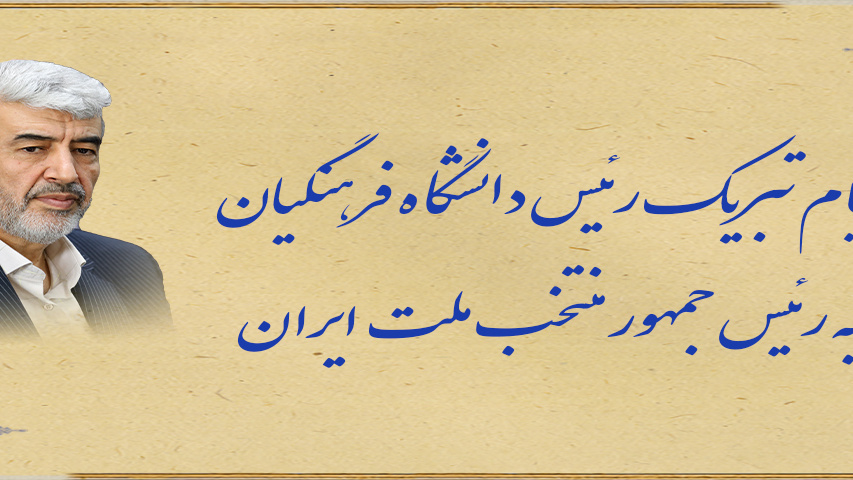 ام تبریک رئیس دانشگاه فرهنگیان
به رئیس جمهور منتخب ملت ایران